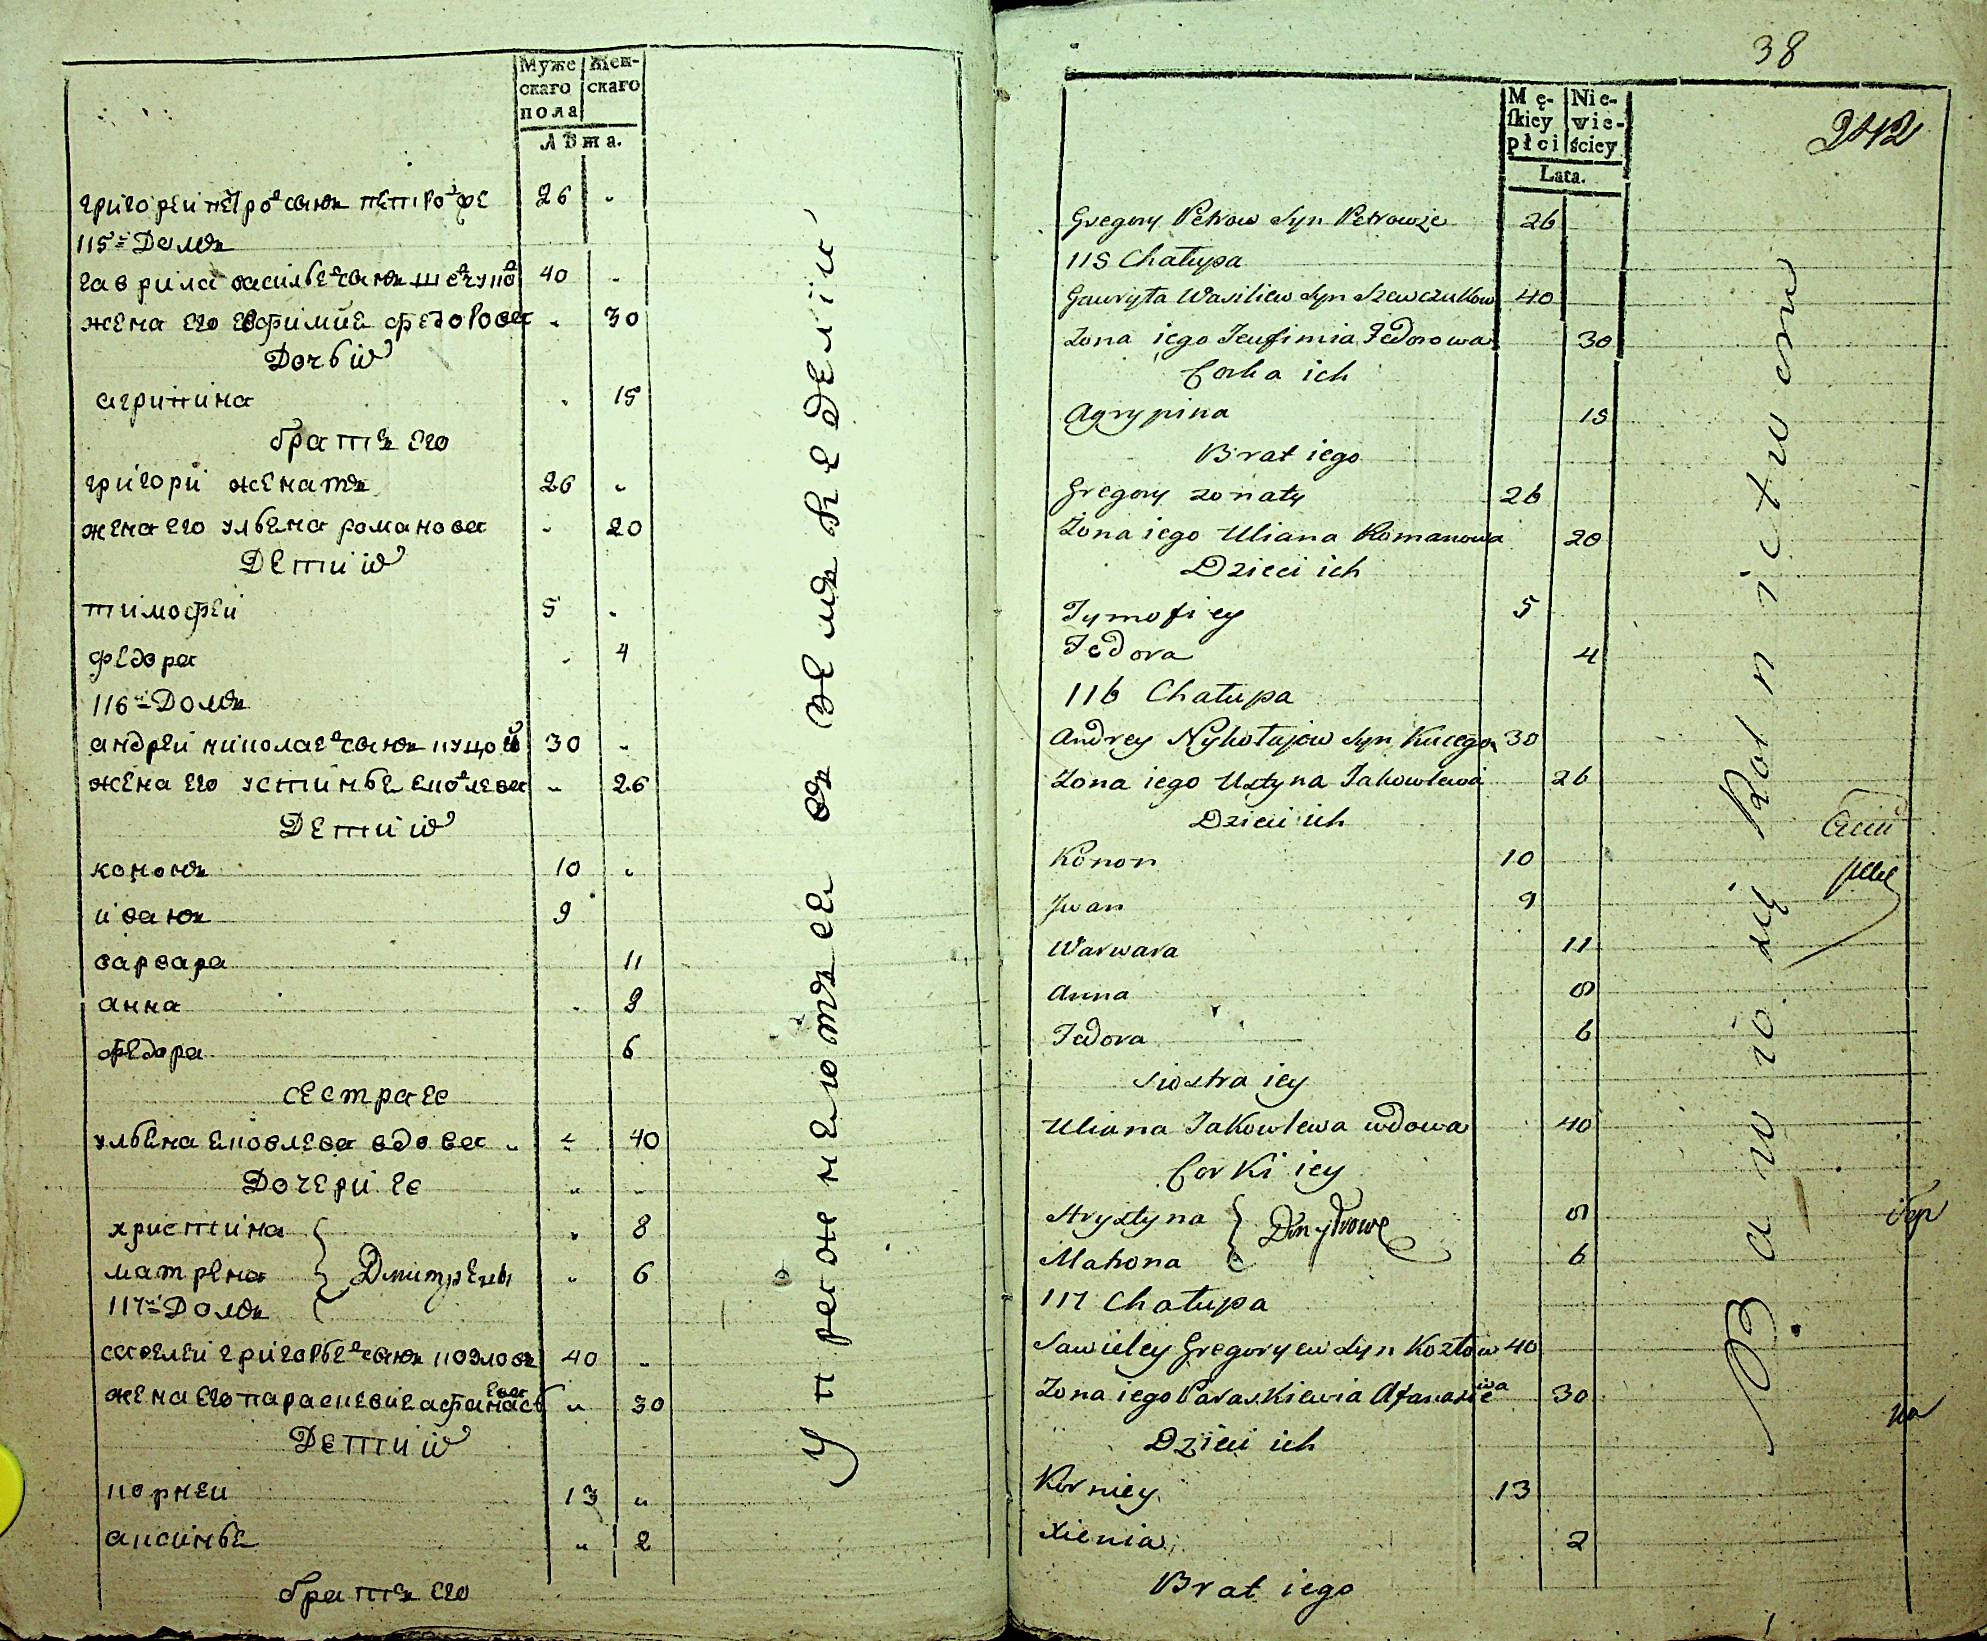 Муже
скаго
пола
Жен-
скаго
Лѣта.
григореи петров сынъ петровѣ 26
115й Домъ
гаврила васильев сынъ шевчуков 40
жена его евфимие федорова 30
Дочь их
агрипина 15
братъ его
григори женатъ 26
жена его ульена романова 20
Дети их
тимофеи 5
федора 4
116й Домъ
андреи николаев сынъ куцои 30
жена его устинье ековлева 26
Дети их
кононъ 10
иванъ 9
варвара 11
анна 9
федора 6
сестра ее
ульена ековлева вдова 40
Дочери ее
христина 8
матрена Дмитревы 6
117й Домъ
савелеи григорьев сынъ козловъ 40
жена его параскевие афанасьева 30
Дети их
корнеи 13
аксинье 2
братъ его
Упражнеютъся въ земъледелии
38
242
Mę-
skiey
płci
Nie-
wie-
ściey
Lata.
Gregory Petrow Syn Petrowże 26
115 Chałupa
Gawryła Wasiliew Syn Szewczukow 40
Zona iego Jeufimia Fedorowa 30
Corka ich
Agrypina 15
Brat iego
Gregory zonaty 26
Zona iego Uliana Romanowa 20
Dzieci ich
Tymofiey 5
Fedora 4
116 Chałupa
Andrey Nykołajew Syn Kucego 30
Zona iego Ustyna Jakowlewa 26
Dzieci ich
Konon 10
Jwan 9
Warwara 11
Anna 9
Fedora 6
Siostra iey
Uliana Jakowlewa wdowa 40
Corki iey
Hrystyna 8
Matrona Dmytrowe 6
117 Chałupa
Sawieley Gregoryew Syn Kozłow 40
Zona iego Paraskiewia Afanasiewa 30
Dzieci ich
Korniey 13
Xienia 2
Brat iego
Bawio się Rolnictwem